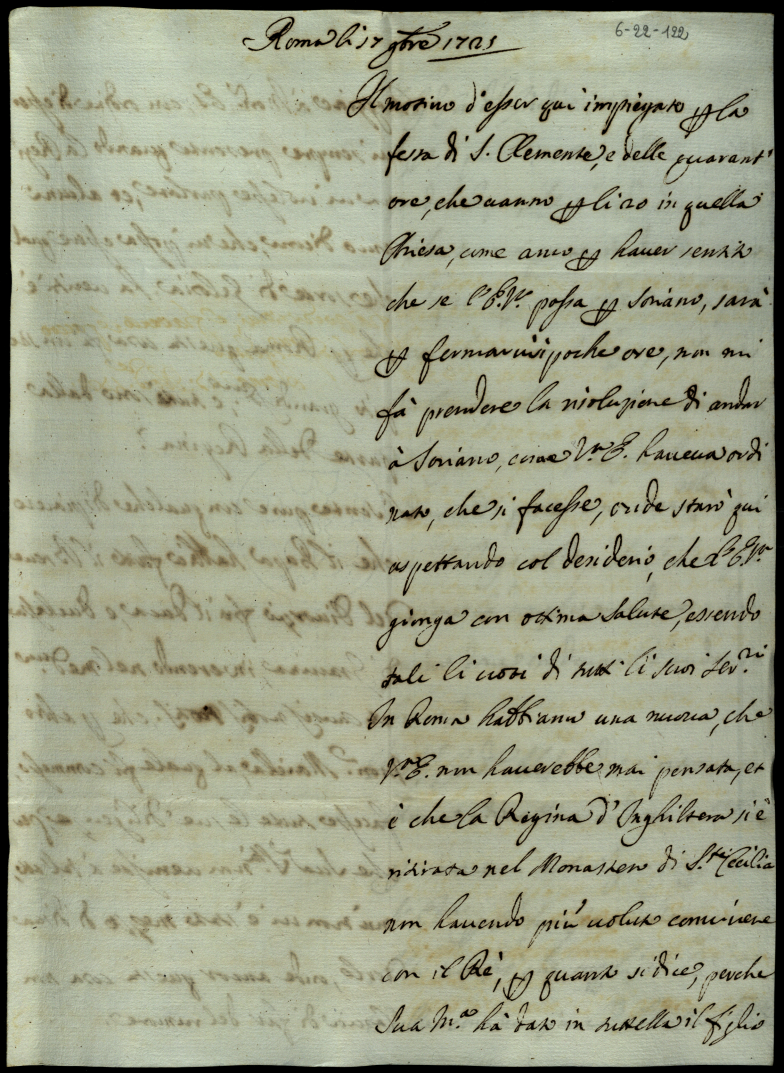 6-22-122
Roma li 17 9bre 1725
Il motivo d'esser qui impiegato per la
festa di S. Clemente, e delle quarant'
ore, che vanno per li 20 in quella
Chiesa, come anco per haver sentito
che se l'E. Vra possa per Soriano, sarà
per fermarvisi poche ore, non mi
fà prendere la risoluzione di andar
à Soriano, come Vra E. haveva ordi
nato, che si facesse, onde starò qui
aspettando col desiderio, che l'E. Vra
gionga con ottima salute, essendo
tali li voti di tutti li suoi Serri
In Roma habbiamo una nuova, che
Vra E. non haverebbe mai pensata, et
è che la Regina d'Inghilterra si è
ritirata nel Monastero di S.ta Cecilia
non havendo più voluto convivere
con il Rè, per quanto si dice, perche
Sua M.a hà dato in tutella il figlio